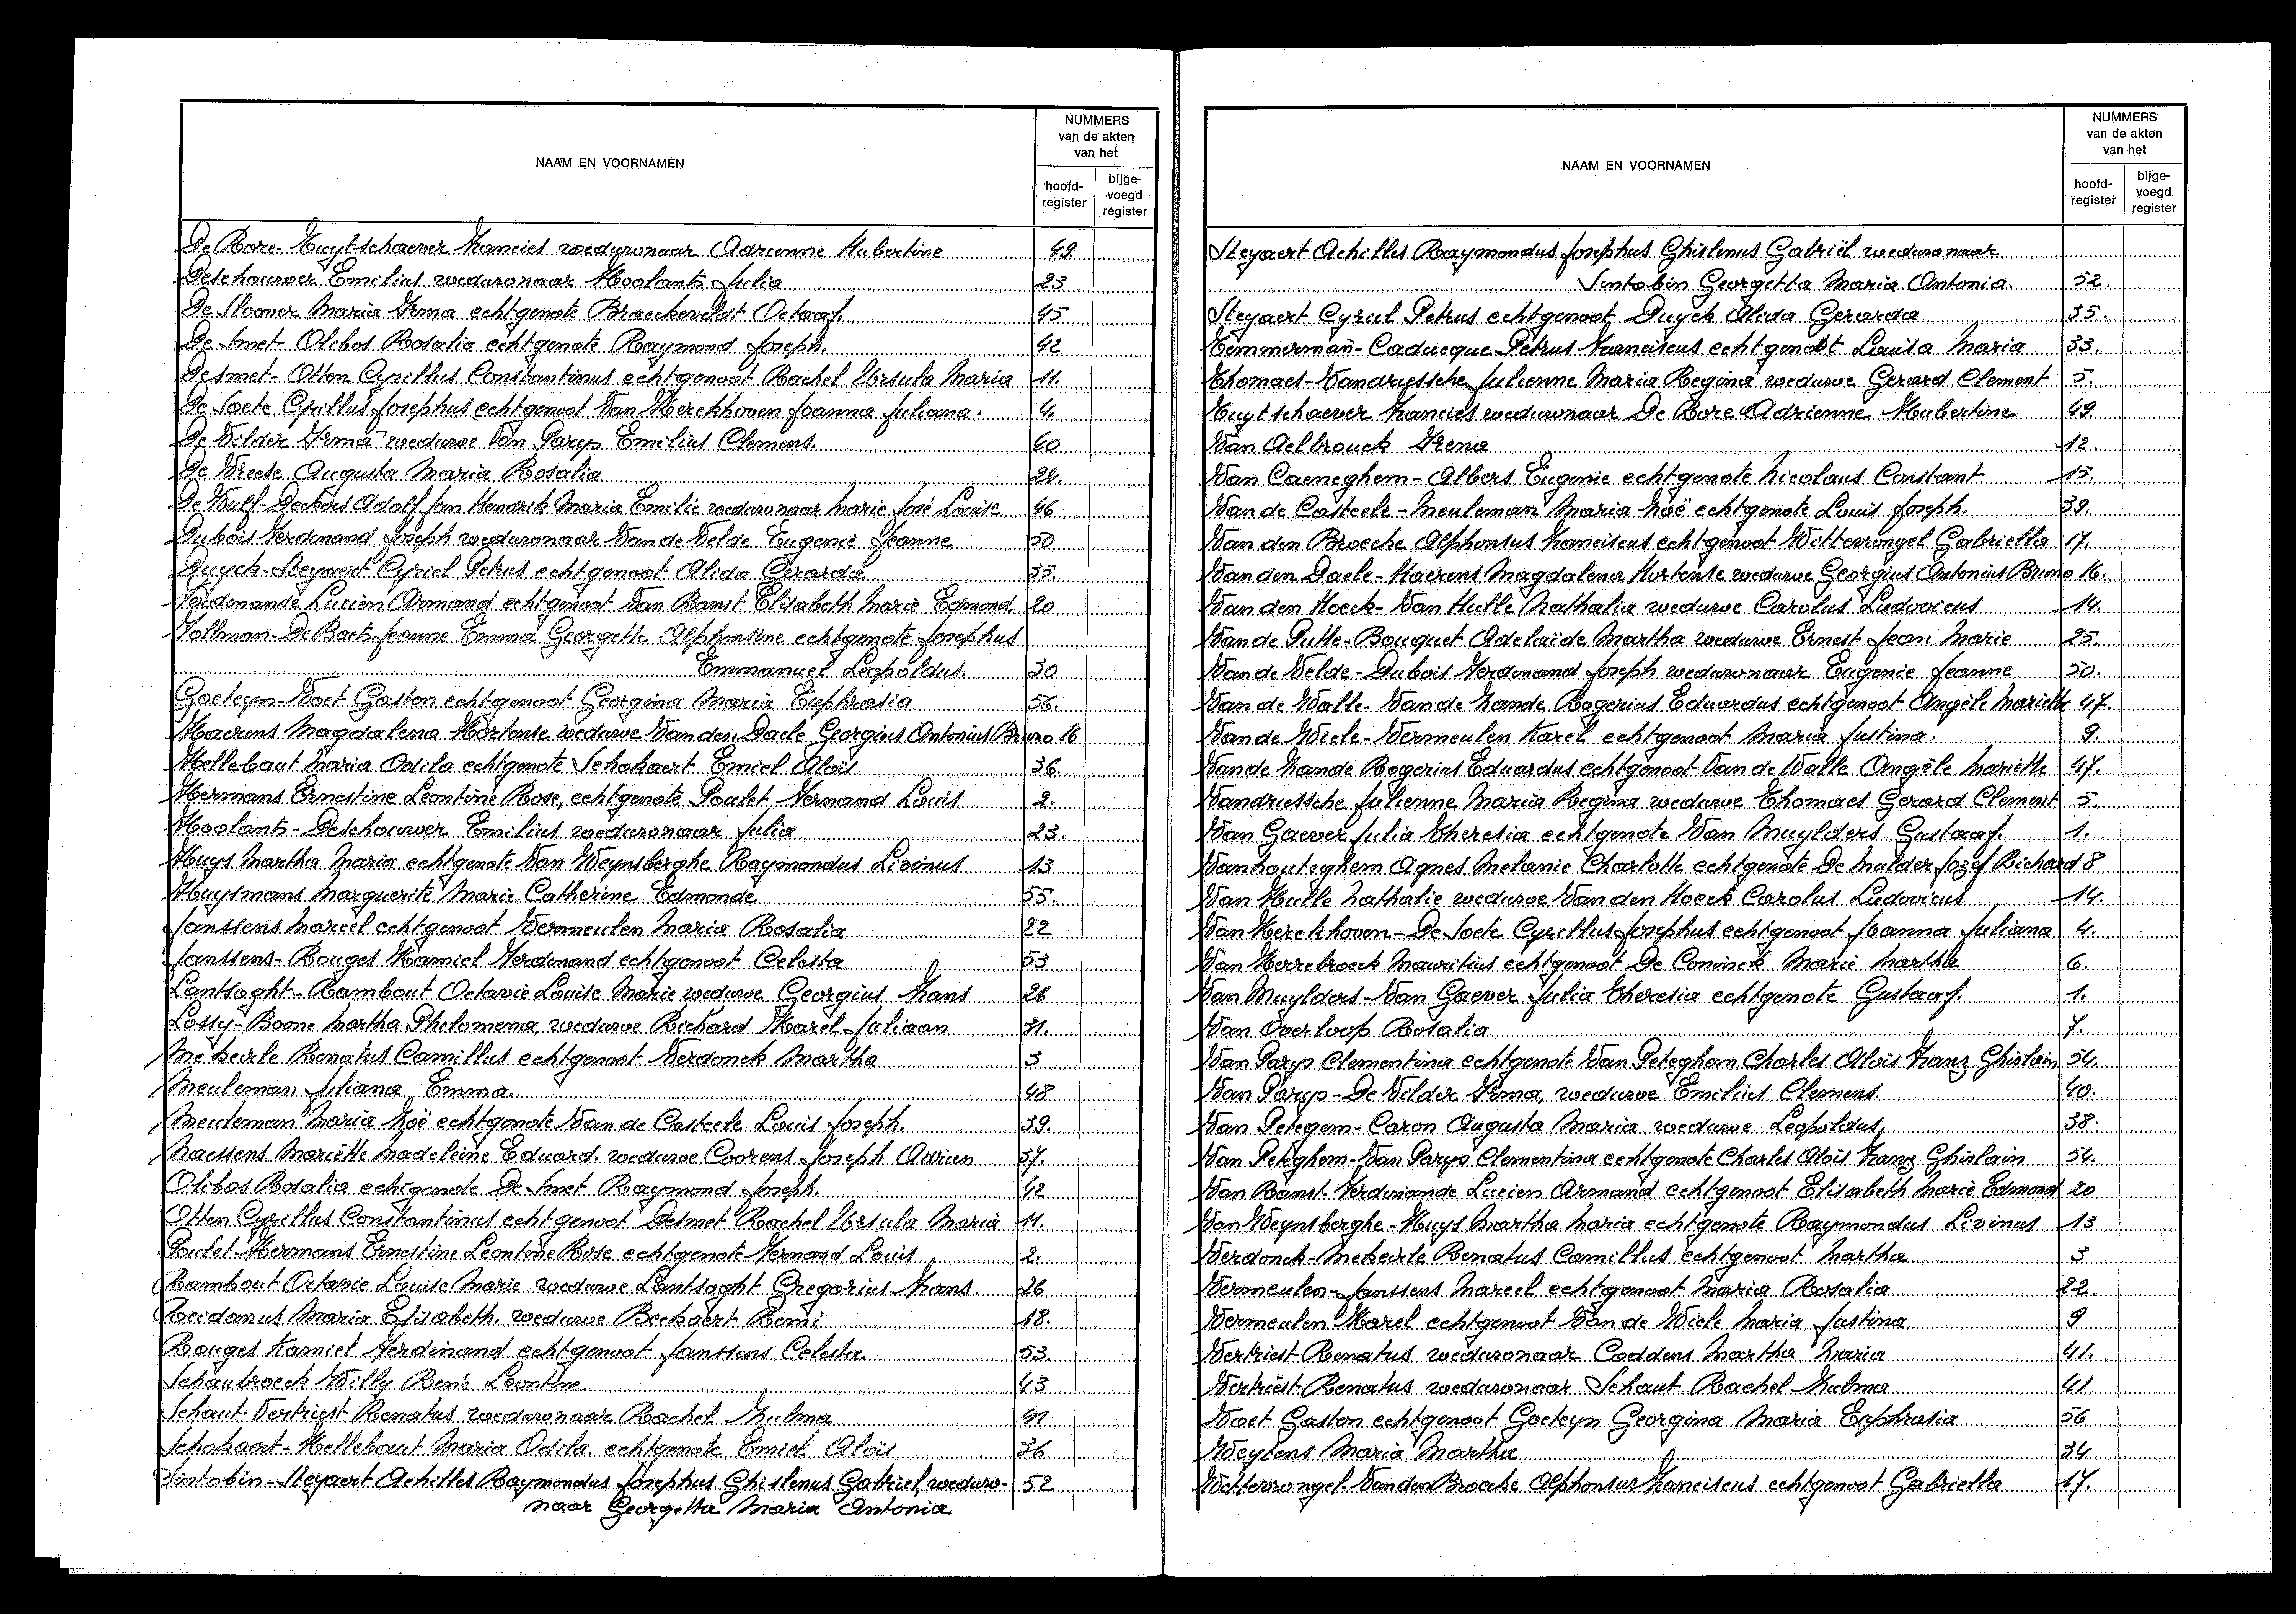 NAAM EN VOORNAMEN
NUMMERS
van de akten
van het
hoofd-
register
bijge-
voegd
register
De Bore-Tuytschaever Francies weduwnaar Adrienne Hubertine 49.
Deschouwer Emilius weduwnaar Hoolants Julia 23
De Sloover Maria Irma echtgenote Braeckeveldt Octaaf. 45
De Smet-Olibos Rosalia echtgenote Raymond Joseph. 42
Desmet-Otten Cyrillus Constantinus echtgenoot Rachel Ursula Maria 11.
De Soete Cyrillus Josephus echtgenoot Van Kerckhoven Joanna Juliana. 4.
De Vilder Irma weduwe Van Parys Emilius Clemens. 40
De Vreese Augusta Maria Rosalia 24.
De Wulf-Deckers Adolf Jan Hendrik Maria Emilie weduwnaar Marie José Louise 46
Dubois Ferdinand Joseph weduwnaar Van de Velde Eugenie Jeanne 50
Duyck-Steyaert Cyriel Petrus echtgenoot Alida Gerarda 35.
Ferdinande Lucien Armand echtgenoot Van Ranst Elisabeth Marie Edmond. 20
Follman-De Baets Jeanne Emma Georgette Alphonsine echtgenote Josephus
Emmanuel Leopoldus. 30
Goeteyn-Voet Gaston echtgenoot Georgina Maria Euphrasia 56.
Haerens Magdalena Hortense weduwe Van den Daele Georgius Antonius Bruno 16
Hellebaut Maria Odila echtgenote Schokaert Emiel Aloïs 36.
Hermans Ernestine Leontine Rose, echtgenote Poulet Fernand Louis 2.
Hoolants-Deschouwer Emilius weduwnaar Julia 23.
Huys Martha Maria echtgenote Van Weynsberghe Raymondus Livinus 13
Huysmans Marguerite Marie Catherine Edmonde 55.
Janssens Marcel echtgenoot Vermeulen Maria Rosalia 22
Janssens-Rouges Kamiel Ferdinand echtgenoot Celesta 53
Lantsoght-Rambout Octavie Louise Marie weduwe Georgius Frans 26
Lossy-Boone Martha Philomena, weduwe Richard Karel Juliaan 31.
Mekeirle Renatus Camillus echtgenoot Verdonck Martha 3
Meuleman Juliana Emma. 48
Meuleman Maria Zoë echtgenote Van de Casteele Louis Joseph. 39.
Naessens Mariëtte Madeleine Eduard. weduwe Coorens Joseph Adrien 57.
Olibos Rosalia echtgenote De Smet Raymond Joseph. 42
Otten Cyrillus Constantinus echtgenoot Desmet Rachel Ursula Maria 11.
Poulet-Hermans Ernestine Leontine Rose echtgenote Fernand Louis 2.
Rambout Octavie Louise Marie weduwe Lantsoght Gregorius Frans. 26
Reidamus Maria Elisabeth. weduwe Beckaert Remi 18.
Rouges Kamiel Ferdinand echtgenoot Janssens Celesta 53.
Schaubroeck Willy René Leontine 43
Schaut-Vertriest Renatus weduwnaar Rachel Zulma 41
Schokaert-Hellebaut Maria Odila. echtgenote Emiel Aloïs 36
Sintobin-Steyaert Achilles Raymondus Josephus Ghislenus Gabriel, weduw- 52
naar Georgetta Maria Antonia
NAAM EN VOORNAMEN
NUMMERS
van de akten
van het
hoofd-
register
bijge-
voegd
register
Steyaert Achilles Raymondus Josephus Ghislenus Gabriël weduwnaar
Sintobin Georgetta Maria Antonia. 52.
Steyaert Cyriel Petrus echtgenoot Duyck Alida Gerarda 35.
Temmerman-Caducque Petrus Franciscus echtgenoot Louisa Maria 33.
Thomaes-Vandriessche Julienne Maria Regina weduwe Gerard Clement 5.
Tuytschaever Francies weduwnaar De Bore Adrienne Hubertine 49.
Van Aelbrouck Irena 12.
Van Caeneghem-Albers Eugenie echtgenote Nicolaus Constant 15.
Van de Casteele-Meuleman Maria Zoë echtgenote Louis Joseph. 39.
Van den Broecke Alphonsus Franciscus echtgenoot Wittevrongel Gabriella 17.
Van den Daele-Haerens Magdalena Hortense weduwe Georgius Antonius Bruno 16.
Van den Hoeck-Van Hulle Nathalia weduwe Carolus Ludovicus 14.
Van de Putte-Bouquet Adelaïde Martha weduwe Ernest Jean Marie 25.
Van de Velde-Dubois Ferdinand Joseph weduwnaar Eugenie Jeanne 50.
Van de Walle-Van de Zande Rogerius Eduardus echtgenoot Angèle Mariette 47.
Van de Wiele-Vermeulen Karel echtgenoot Maria Justina. 9.
Van de Zande Rogerius Eduardus echtgenoot Van de Walle Angèle Mariette 47.
Vandriessche Julienne Maria Regina weduwe Thomaes Gerard Clement 5.
Van Gaever Julia Theresia echtgenote Van Muylders Gustaaf. 1.
Vanhouteghem Agnes Melanie Charlotte echtgenote De Mulder Jozef Richard 8
Van Hulle Nathalie weduwe Van den Hoeck Carolus Ludovicus 14.
Van Kerckhoven-De Soete Cyrillus Josephus echtgenoot Joanna Juliana 4.
Van Herrebroeck Mauritius echtgenoot De Coninck Marie Martha 6.
Van Muylders-Van Gaever Julia Theresia echtgenote Gustaaf. 1.
Van Overloop Rosalia 7.
Van Parys Clementina echtgenote Van Peteghem Charles Aloïs Franz Ghislain 54.
Van Parys-De Vilder Irma, weduwe Emilius Clemens. 40.
Van Petegem-Caron Augusta Maria weduwe Leopoldus, 38.
Van Peteghem-Van Parys Clementina echtgenote Charles Aloïs Franz Ghislain 54.
Van Ranst-Ferdinande Lucien Armand echtgenoot Elisabeth Marie Edmond 20
Van Weynsberghe-Huys Martha Maria echtgenote Raymondus Livinus 13
Verdonck-Mekeirle Renatus Camillus echtgenoot Martha 3
Vermeulen-Janssens Marcel echtgenoot Maria Rosalia 22.
Vermeulen Karel echtgenoot Van de Wiele Maria Justina 9
Vertriest Renatus weduwnaar Coddens Martha Maria 41.
Vertriest Renatus weduwnaar Schaut Rachel Zulma 41
Voet Gaston echtgenoot Goeteyn Georgina Maria Euphrasia 56
Weytens Maria Martha 34
Wittevrongel-Van den Broecke Alphonsus Franciscus echtgenoot Gabriella 17.